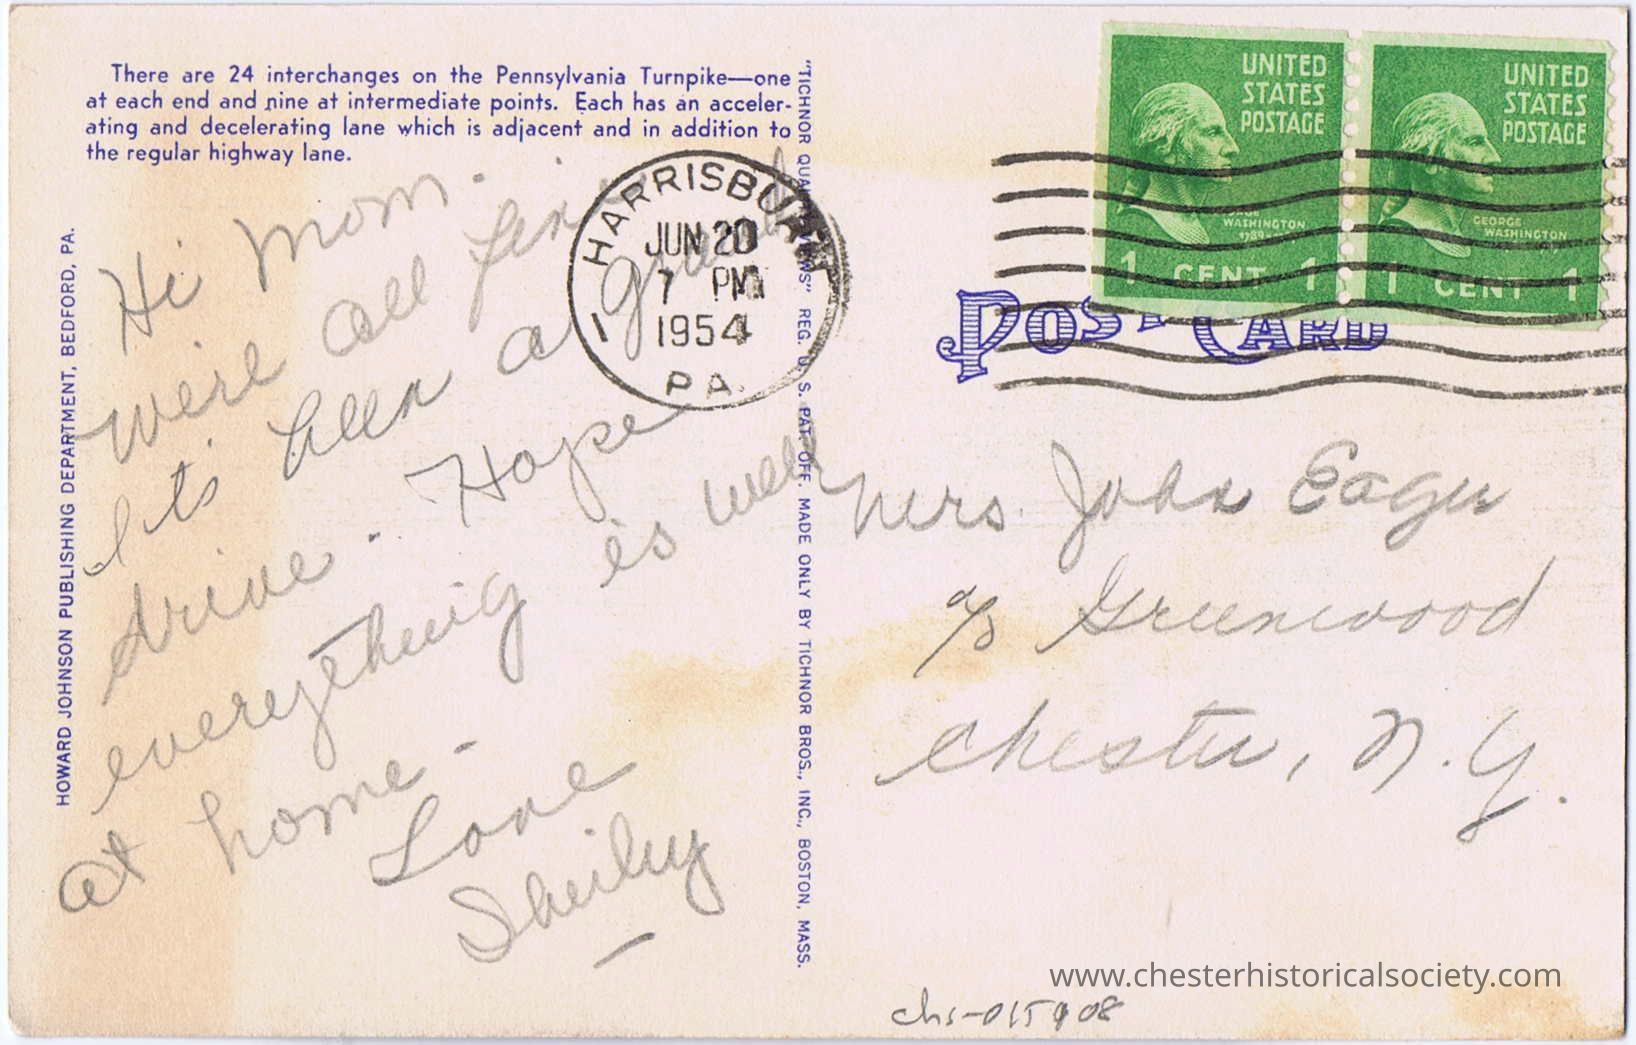 There are 24 interchanges on the Pennsylvania Turnpike—one
at each end and nine at intermediate points. Each has an acceler-
ating and decelerating lane which is adjacent and in addition to
the regular highway lane.
HOWARD JOHNSON PUBLISHING DEPARTMENT, BEDFORD, PA.
Hi Mom.
We're all fine
It's been a grand
drive. Hope
everything is well
at home.
Love
"TICHNOR QUALITY VIEWS" REG. U. S. PAT. OFF. MADE ONLY BY TICHNOR BROS., INC., BOSTON, MASS.
HARRISBURG
JUN 20
7 PM
1954
1
PA.
UNITED
STATES
POSTAGE
GEORGE
WASHINGTON
1789
1 CENT 1
UNITED
STATES
POSTAGE
GEORGE
WASHINGTON
1 CENT 1
POST CARD
Mrs. John Eager
% Greenwood
Chester, N.Y.
www.chesterhistoricalsociety.com
chs-015908